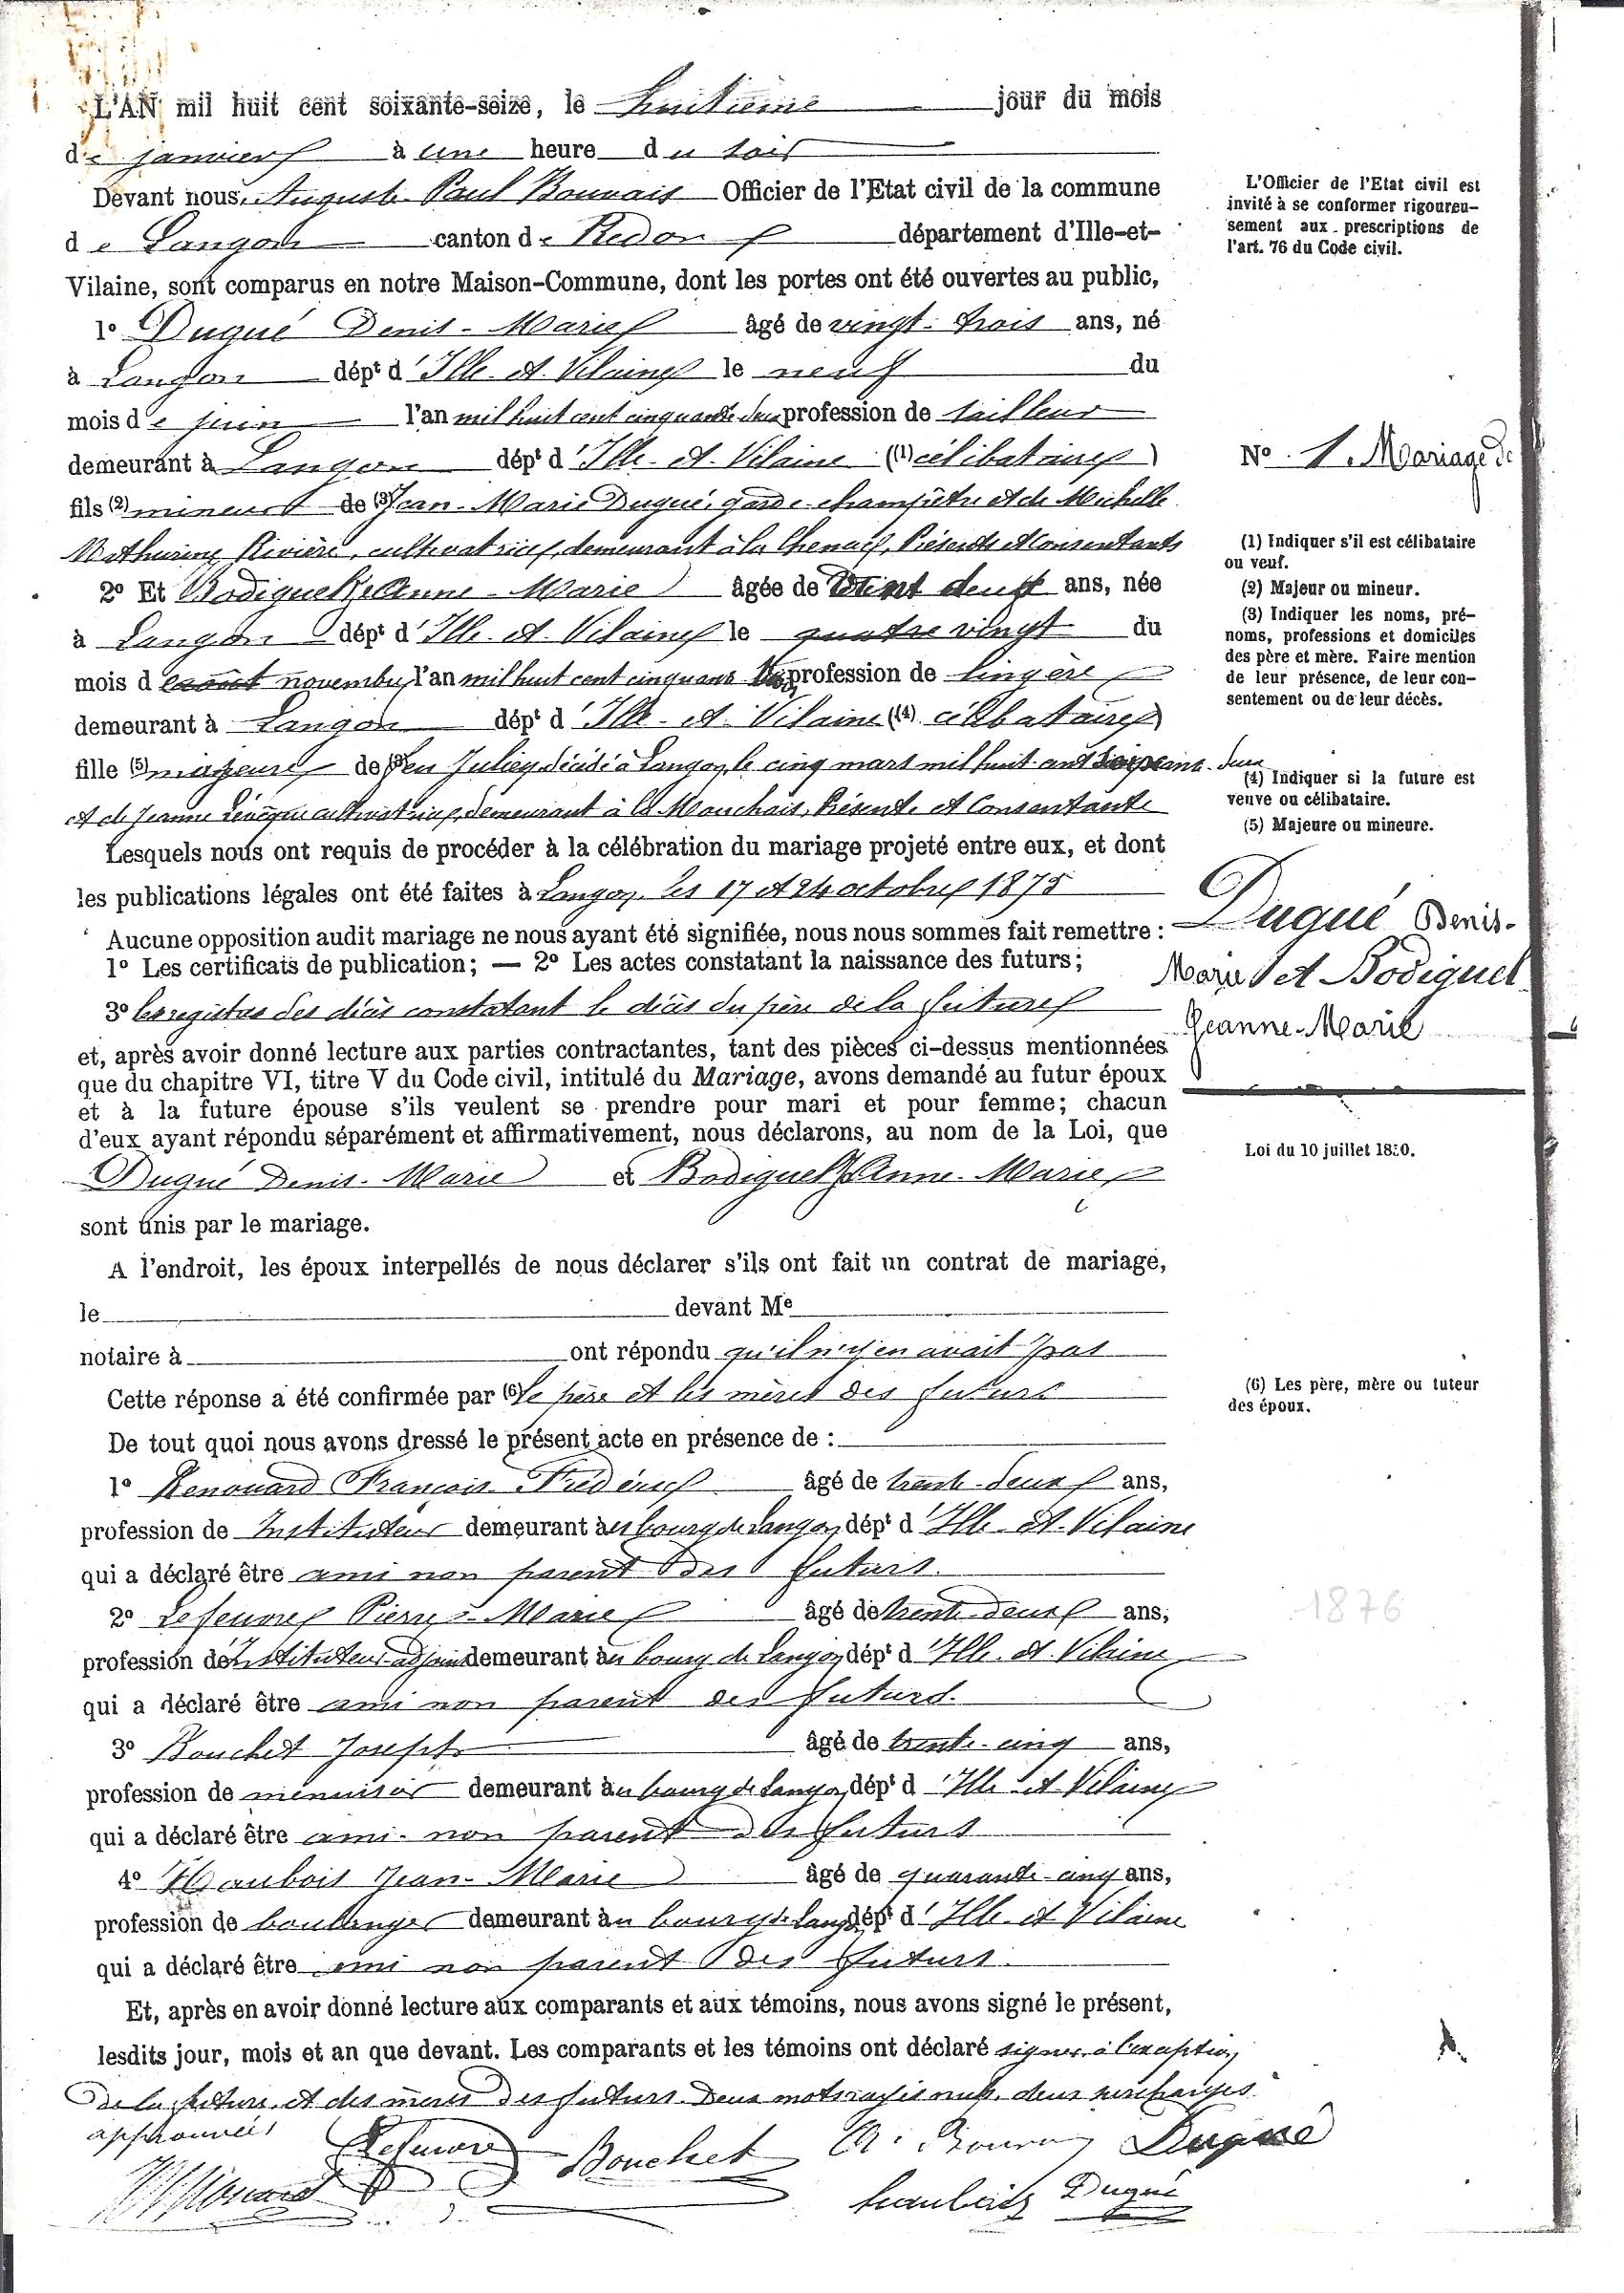 L'AN mil huit cent soixante-seize, le huitième jour du mois
de janvier à une heure du soir
Devant nous, Auguste Paul Bonnais Officier de l'Etat civil de la commune
de Langon canton de Redon département d'Ille-et-
Vilaine, sont comparus en notre Maison-Commune, dont les portes ont été ouvertes au public,
1º Dugué Denis-Marie âgé de vingt-trois ans, né
à Langon dépt d'Ille-et-Vilaine le neuf du
mois de juin l'an mil huit cent cinquante deux profession de tailleur
demeurant à Langon dépt d'Ille-et-Vilaine (1) célibataire
fils (2) mineur de (3) Jean-Marie Dugué, garde-champêtre et de Michelle
Mathurine Rivière, cultivatrice, demeurant à la Chenac, Présents et Consentants
2º Et Bodiguel Jeanne-Marie âgée de vingt deux ans, née
à Langon dépt d'Ille-et-Vilaine le quatre vingt du
mois d août novembre l'an mil huit cent cinquante profession de lingère
demeurant à Langon dépt d'Ille-et-Vilaine (4) célibataire
fille (5) majeure de feu Julien, décédé à Langon, le cinq mars mil huit cent deux
et de Jeanne Lévêque cultivatrice, demeurant à la Mouchais, Présente et Consentante
Lesquels nous ont requis de procéder à la célébration du mariage projeté entre eux, et dont
les publications légales ont été faites à Langon, les 17 et 24 octobre 1875
Aucune opposition audit mariage ne nous ayant été signifiée, nous nous sommes fait remettre :
1º Les certificats de publication; — 2º Les actes constatant la naissance des futurs;
3º les registres des décès constatant le décès du père de la future
et, après avoir donné lecture aux parties contractantes, tant des pièces ci-dessus mentionnées
que du chapitre VI, titre V du Code civil, intitulé du Mariage, avons demandé au futur époux
et à la future épouse s'ils veulent se prendre pour mari et pour femme; chacun
d'eux ayant répondu séparément et affirmativement, nous déclarons, au nom de la Loi, que
Dugué Denis-Marie et Bodiguel Jeanne-Marie
sont unis par le mariage.
A l'endroit, les époux interpellés de nous déclarer s'ils ont fait un contrat de mariage,
le devant Me
notaire à ont répondu qu'il n'y en avait pas
Cette réponse a été confirmée par (6) le père et les mères des futurs
De tout quoi nous avons dressé le présent acte en présence de :
1º Renouard François Frédéric âgé de trente-deux ans,
profession de Instituteur demeurant au bourg de Langon, dépt d'Ille-et-Vilaine
qui a déclaré être ami non parent des futurs.
2º Lefeuvre Pierre-Marie âgé de trente-deux ans,
profession de Instituteur adjoint demeurant au bourg de Langon, dépt d'Ille-et-Vilaine
qui a déclaré être ami non parent des futurs.
3º Bouchet Joseph âgé de trente-cinq ans,
profession de menuisier demeurant au bourg de Langon, dépt d'Ille-et-Vilaine
qui a déclaré être ami non parent des futurs
4º Haubois Jean-Marie âgé de quarante-cinq ans,
profession de boulanger demeurant au bourg de Langon dépt d'Ille-et-Vilaine
qui a déclaré être ami non parent des futurs.
Et, après en avoir donné lecture aux comparants et aux témoins, nous avons signé le présent,
lesdits jour, mois et an que devant. Les comparants et les témoins ont déclaré signer, à l'exception
de la future et des mères des futurs. Deux mots rayés nuls, deux surcharges
approuvées
Lefeuvre Bouchet Dugué
Renouard haubois Dugué
L'Officier de l'Etat civil est
invité à se conformer rigoureu-
sement aux prescriptions de
l'art. 76 du Code civil.
No 1. Mariage de
(1) Indiquer s'il est célibataire
ou veuf.
(2) Majeur ou mineur.
(3) Indiquer les noms, pré-
noms, professions et domiciles
des père et mère. Faire mention
de leur présence, de leur con-
sentement ou de leur décès.
(4) Indiquer si la future est
veuve ou célibataire.
(5) Majeure ou mineure.
Dugué Denis-
Marie et Bodiguel
Jeanne-Marie
Loi du 10 juillet 1850.
(6) Les père, mère ou tuteur
des époux.
1876